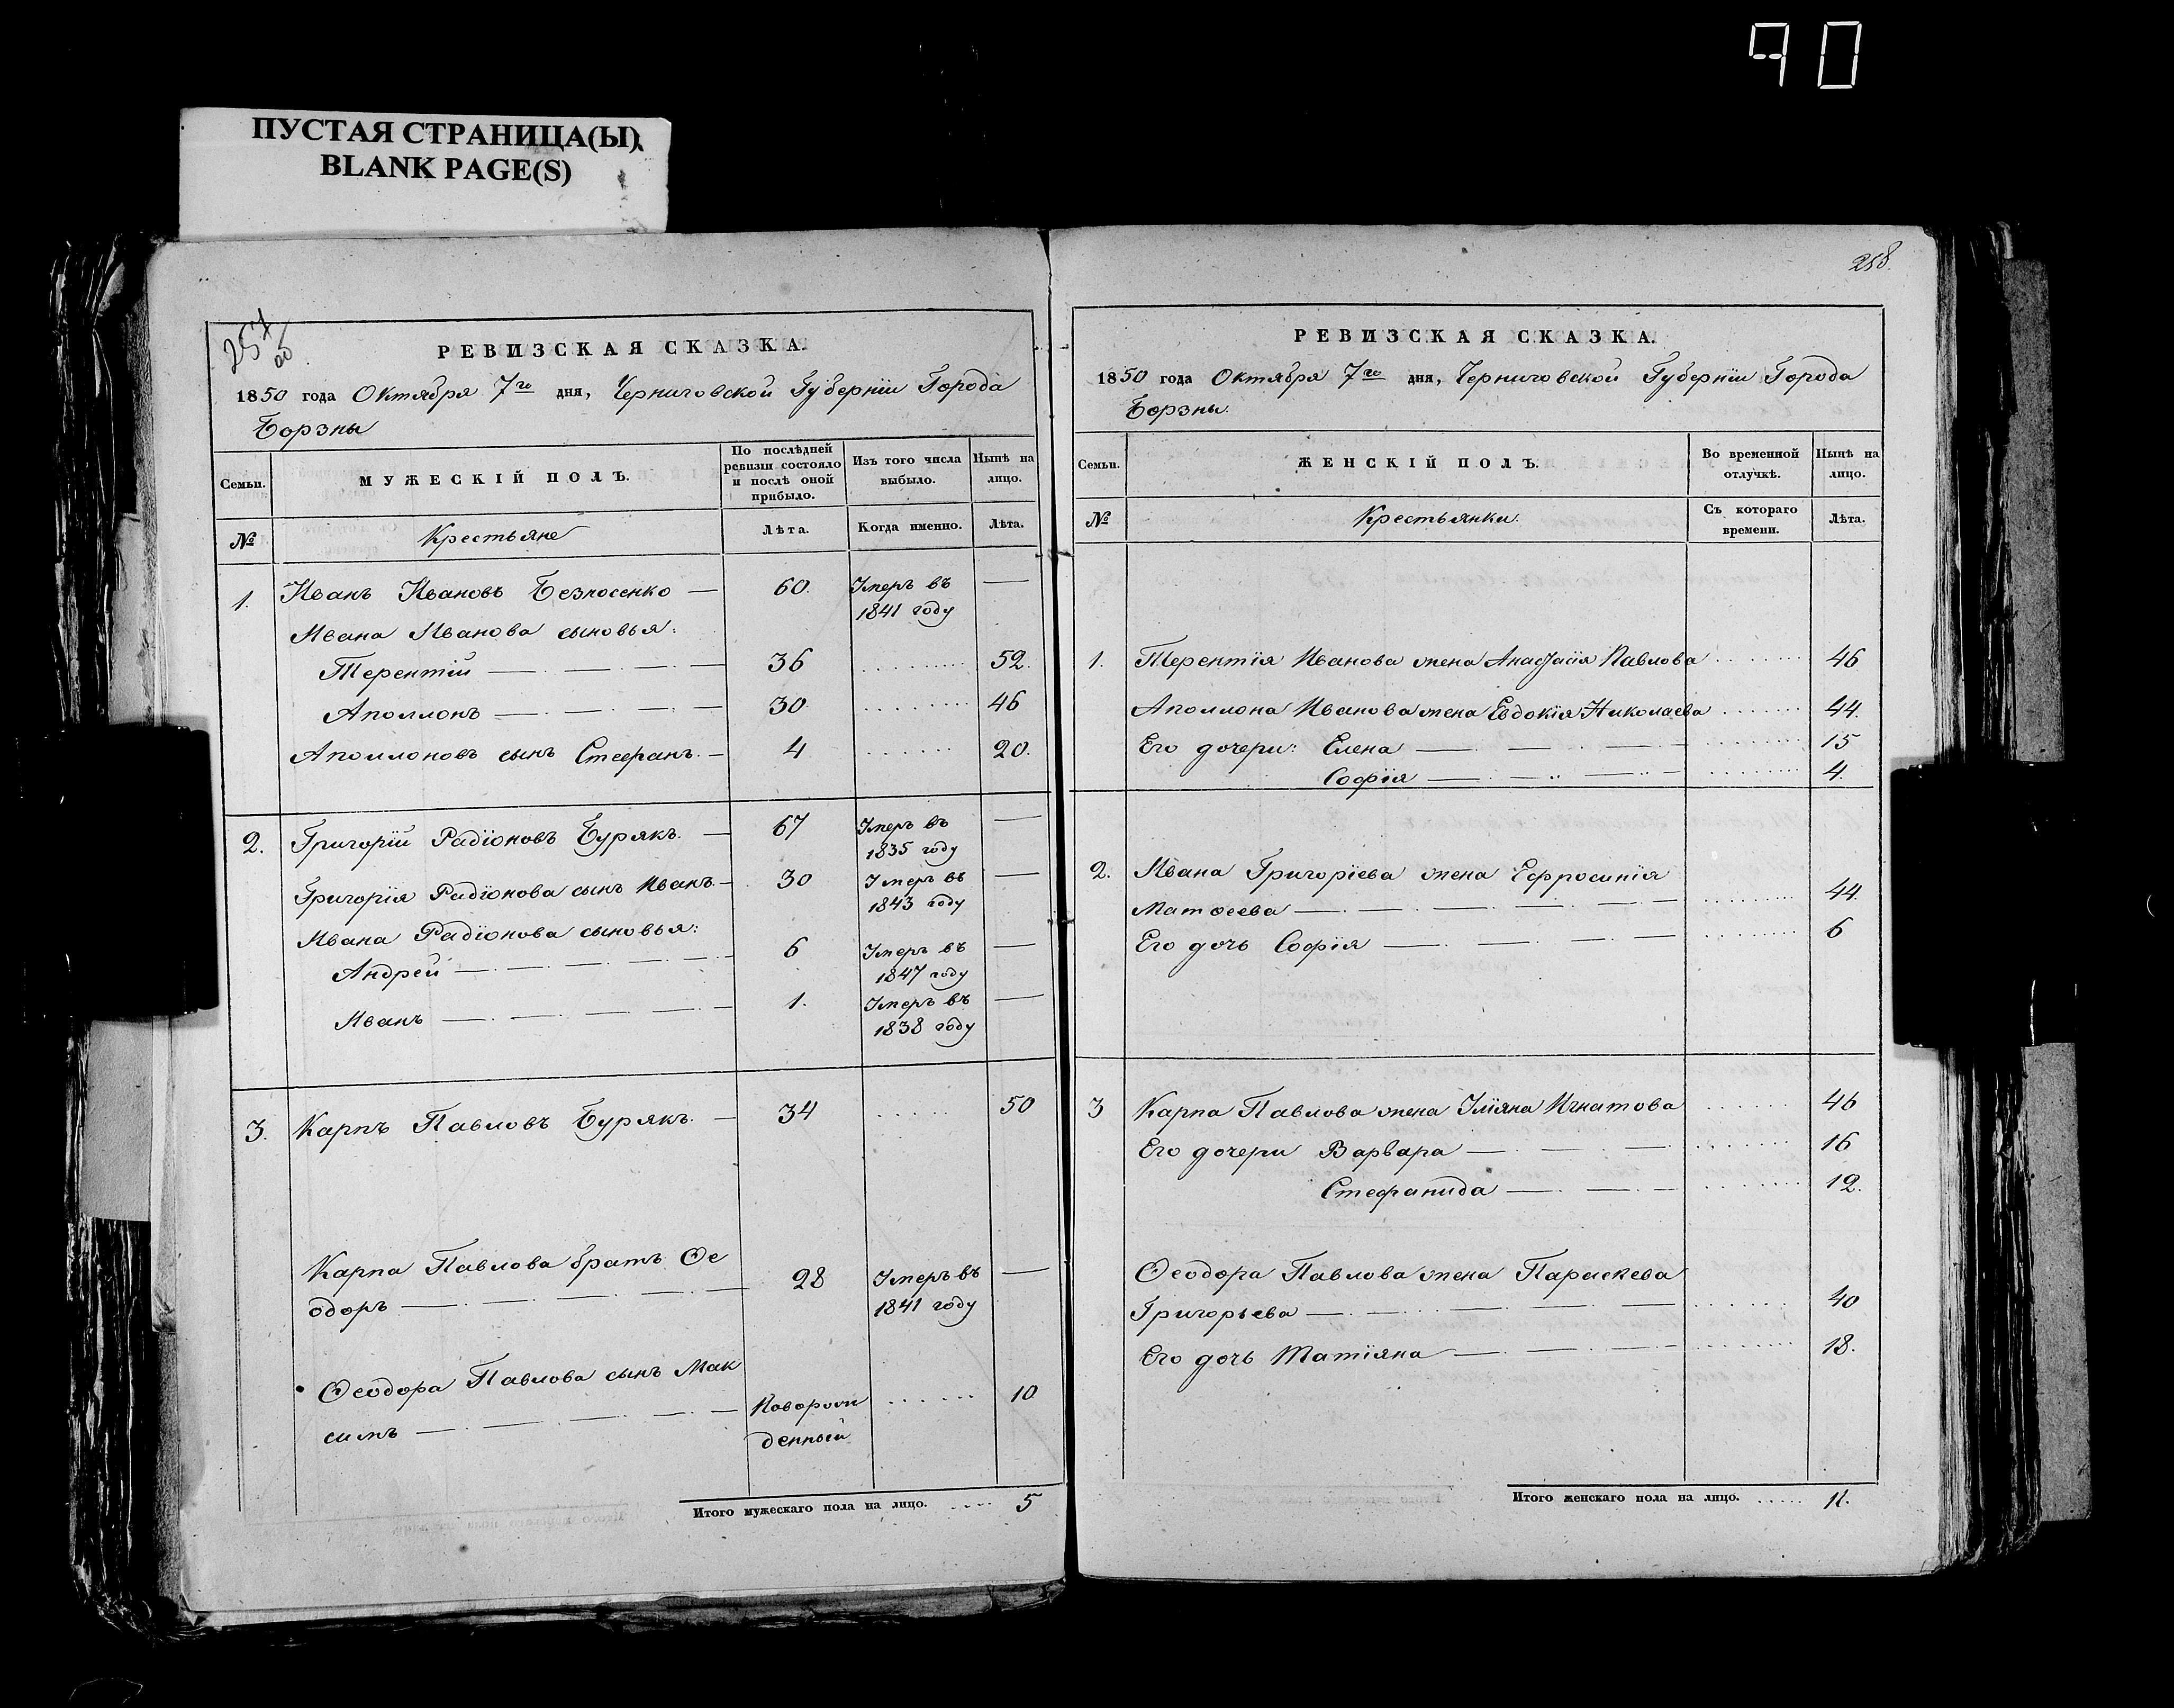 90
ПУСТАЯ СТРАНИЦА(Ы)
BLANK PAGE(S)
257
об
РЕВИЗСКАЯ СКАЗКА.
1850 года Октября 7го дня, Черниговской Губернїи Города
Борзны
Семьи.
МУЖЕСКІЙ ПОЛЪ.
По послѣдней ревизіи состояло и послѣ оной прибыло.
Изъ того числа выбыло.
Нынѣ на лицо.
№
Крестьяне
Лѣта.
Когда именно.
Лѣта.
1. Иванъ Ивановъ Безносенко — 60. Умеръ въ —
1841 году
Ивана Иванова сыновья:
Терентій — 36 52.
Аполлонъ — 30 46
Аполлоновъ сынъ Стефанъ. — 4 20.
2. Григорїй Радїоновъ Бурякъ. — 67 Умеръ въ —
1835 году
Григорїя Радїонова сынъ Иванъ. — 30 Умеръ въ —
1843 году
Ивана Радїонова сыновья:
Андрей — 6 Умеръ въ —
1847 году
Иванъ — 1. Умеръ въ —
1838 году
3. Карпъ Павловъ Бурякъ. — 34 50
Карпа Павлова братъ Ѳе
одоръ — 28 Умеръ въ —
1841 году
Ѳеодора Павлова сынъ Мак
симъ — Новорож
денный 10
Итого мужескаго пола на лицо. .... 5
258.
РЕВИЗСКАЯ СКАЗКА.
1850 года Октября 7го дня, Черниговской Губернїи Города
Борзны.
Семьи.
ЖЕНСКІЙ ПОЛЪ.
Во временной отлучкѣ.
Нынѣ на лицо.
№
Крестьянки.
Съ котораго времени.
Лѣта.
1. Терентїя Иванова жена Анастасїя Павлова 46
Аполлона Иванова жена Евдокїя Николаева 44.
Его дочери: Елена — 15
Софїя — 4.
2. Ивана Григорїева жена Ефросинїя
Матѳеева — 44.
Его дочь Софїя — 6
3 Карпа Павлова жена Улїяна Игнатова 46
Его дочери Варвара — 16
Стефанида — 12.
Ѳеодора Павлова жена Параскева
Григорьева — 40
Его дочь Татїяна — 18.
Итого женскаго пола на лицо. ..... 11.